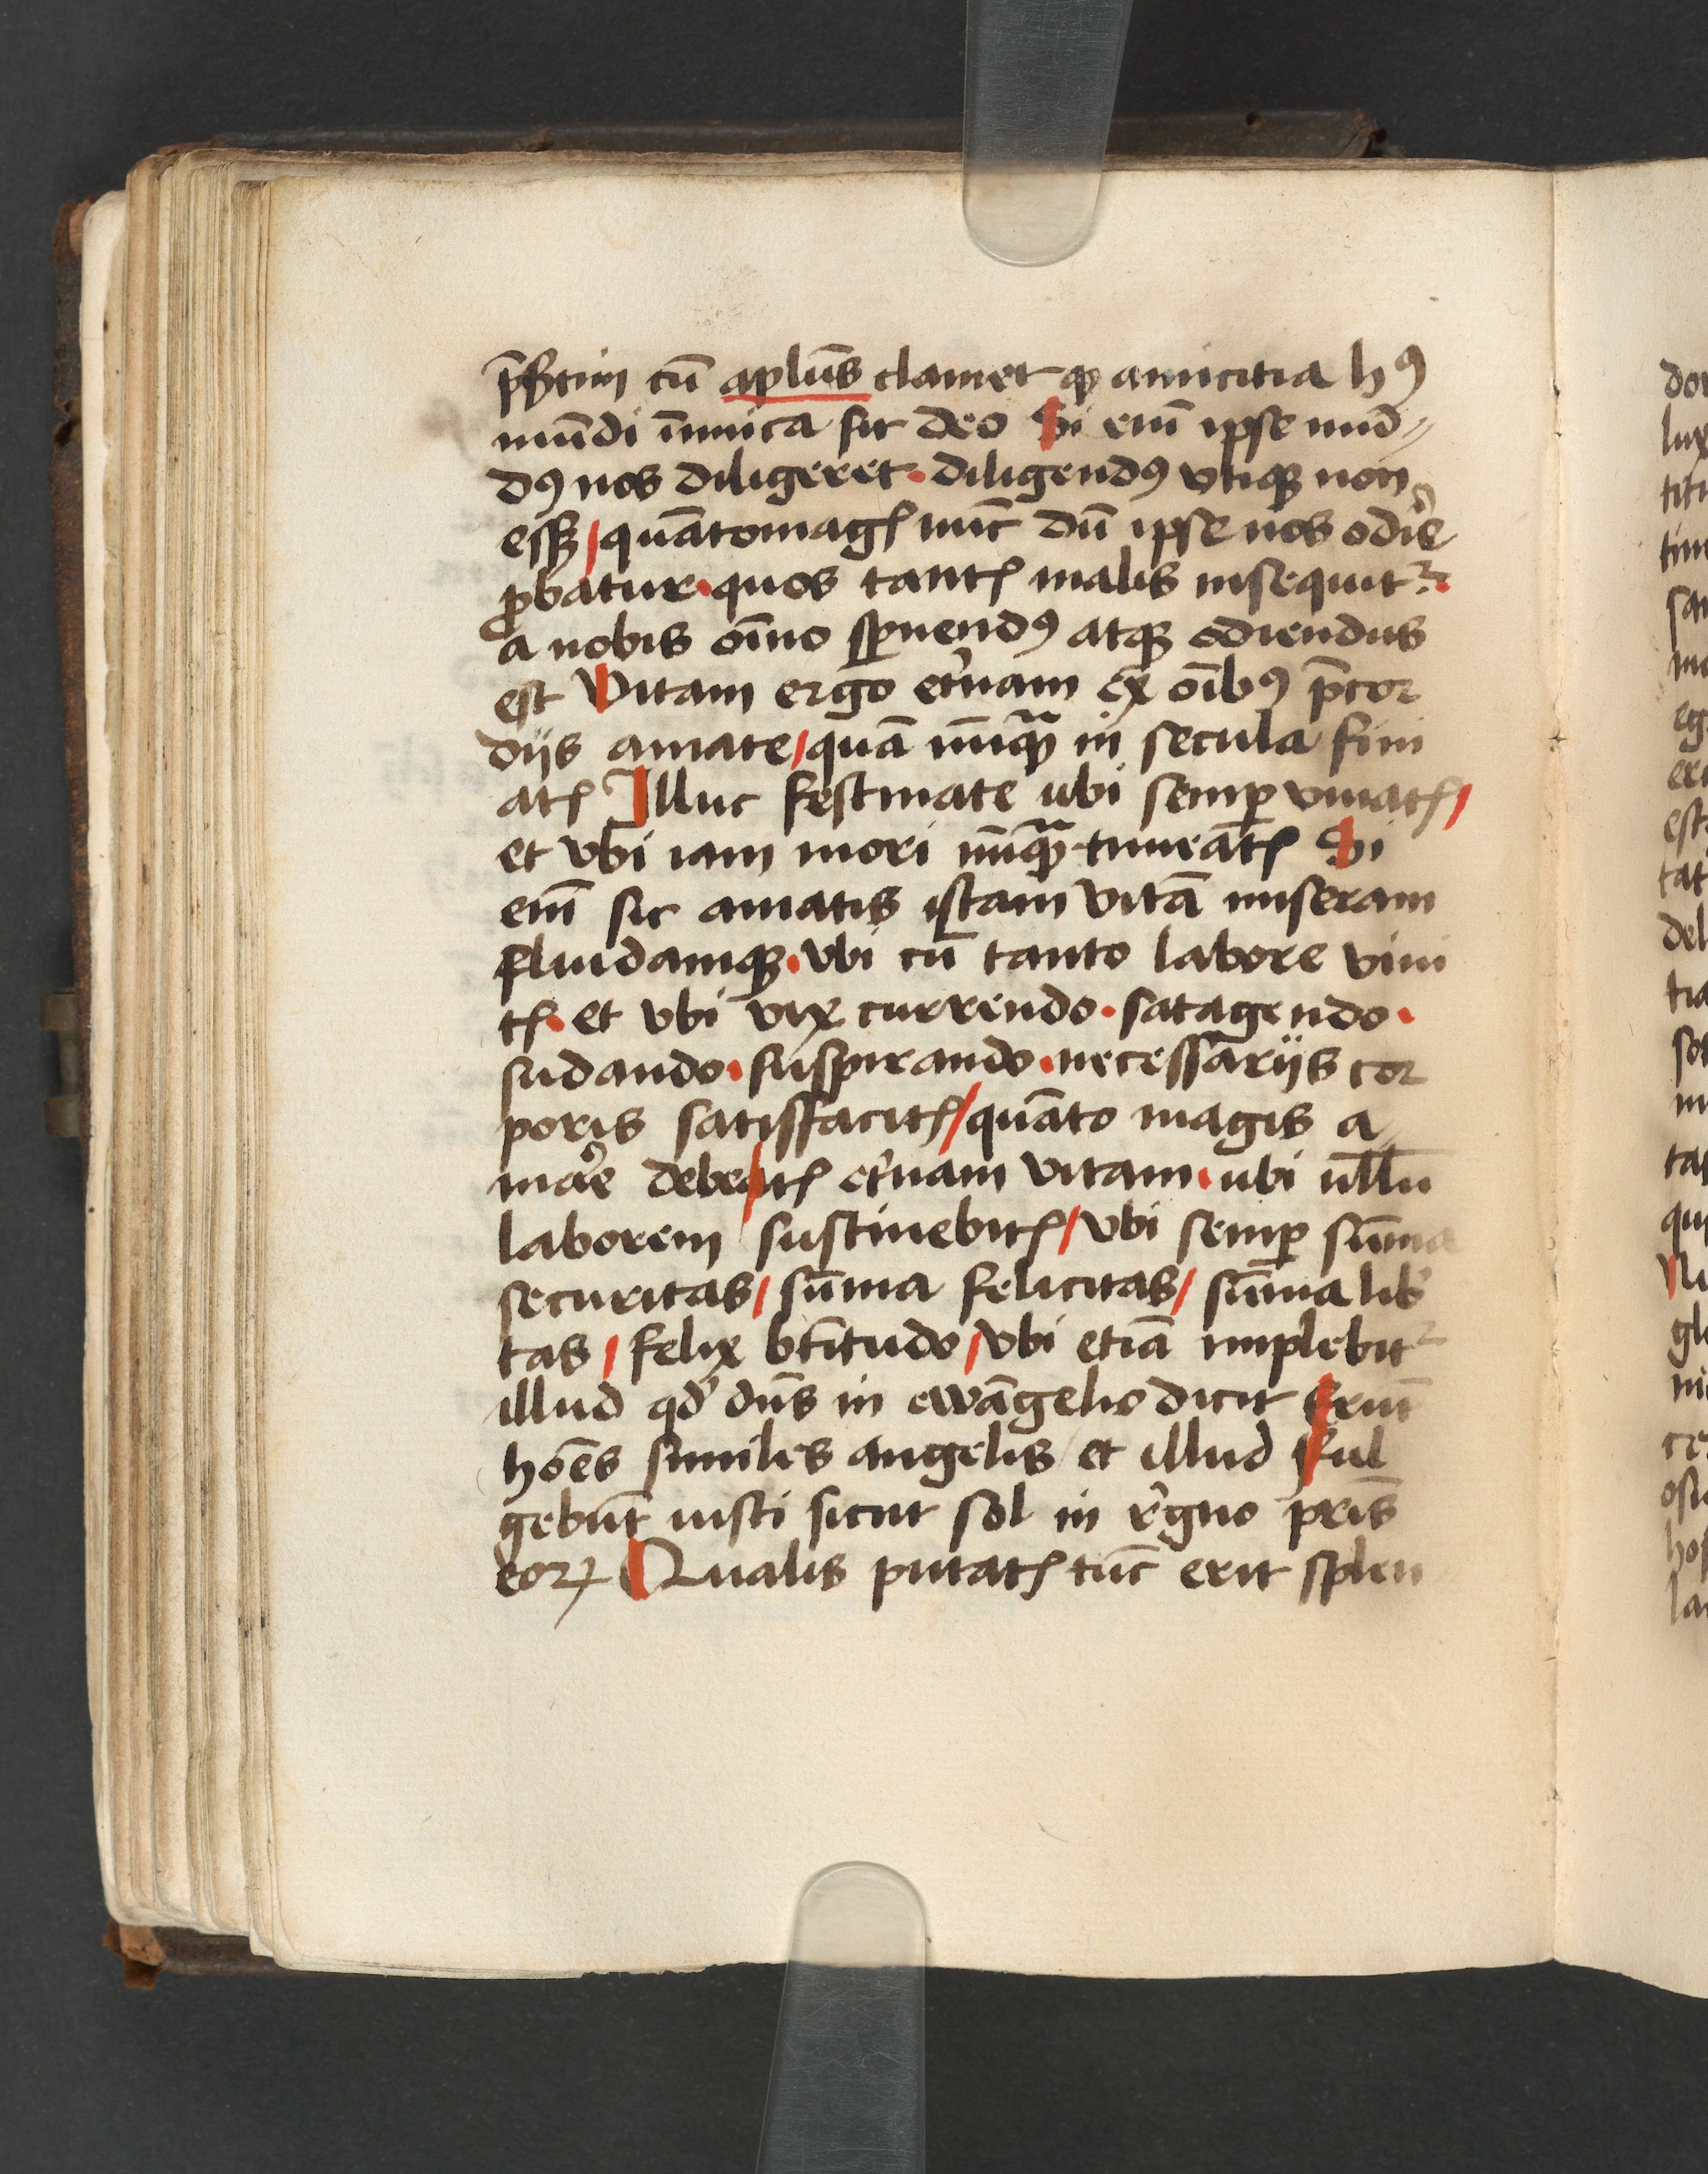 p̄sertim cū aplūs clamet ꝙ amicitia hꝰ
mūdi īimica sit deo Si em̄ ipse mūd⸗
dꝰ nos diligeret · diligendꝰ vtiqꝫ non
essꝫ / quātomagꝭ nūc dū ipse nos odīe
ꝓbatur · quos tantꝭ malis insequit᷑ ·
a nobis oīno sꝑnendꝰ atqꝫ odiendus
est Vitam ergo et̓nam ex oībꝰ p̄cor
dijs amate / quā nūqꝫᷓ in secula fini
atꝭ Illuc festinate ubi semꝑ viuatꝭ /
et vbi iam mori nūqꝫᷓ timeatꝭ Si
em̄ sic amatis istam vitā miseram
fluidamqꝫ · vbi cū tanto labore viui
tꝭ · et vbi vix currendo · satagendo ·
sudando · suspirando · necessarijs cor
poris satisfacitꝭ / quāto magis a
mar̓e debeatꝭ et̓nam vitam · ubi ullū
laborem sustinebitꝭ / vbi semꝑ sūma
securitas / sūma felicitas / sūma lib̓
tas / felix btītudo / vbi etiā implebit᷑
illud qd̓ dn̄s in ewāgelio dicit Erūt
hoēs similes angelis / et illud Ful
gebūt iusti sicut sol in r̓gno pr̄is
eoꝝ Qualis putatꝭ tūc erit splen